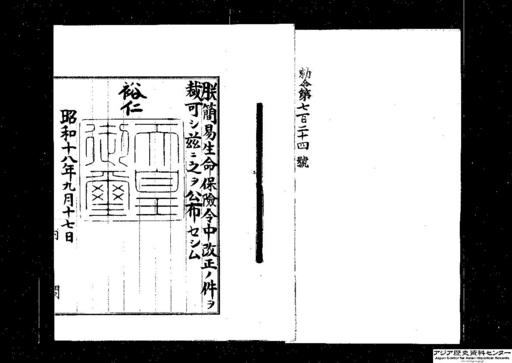 勅令第七百二十四號
朕簡易生命保險令中改正ノ件ヲ
裁可シ茲ニ之ヲ公布セシム
裕仁
天皇
御璽
昭和十八年九月十七日
内閣
アジア歴史資料センター
Japan Center for Asian Historical Records